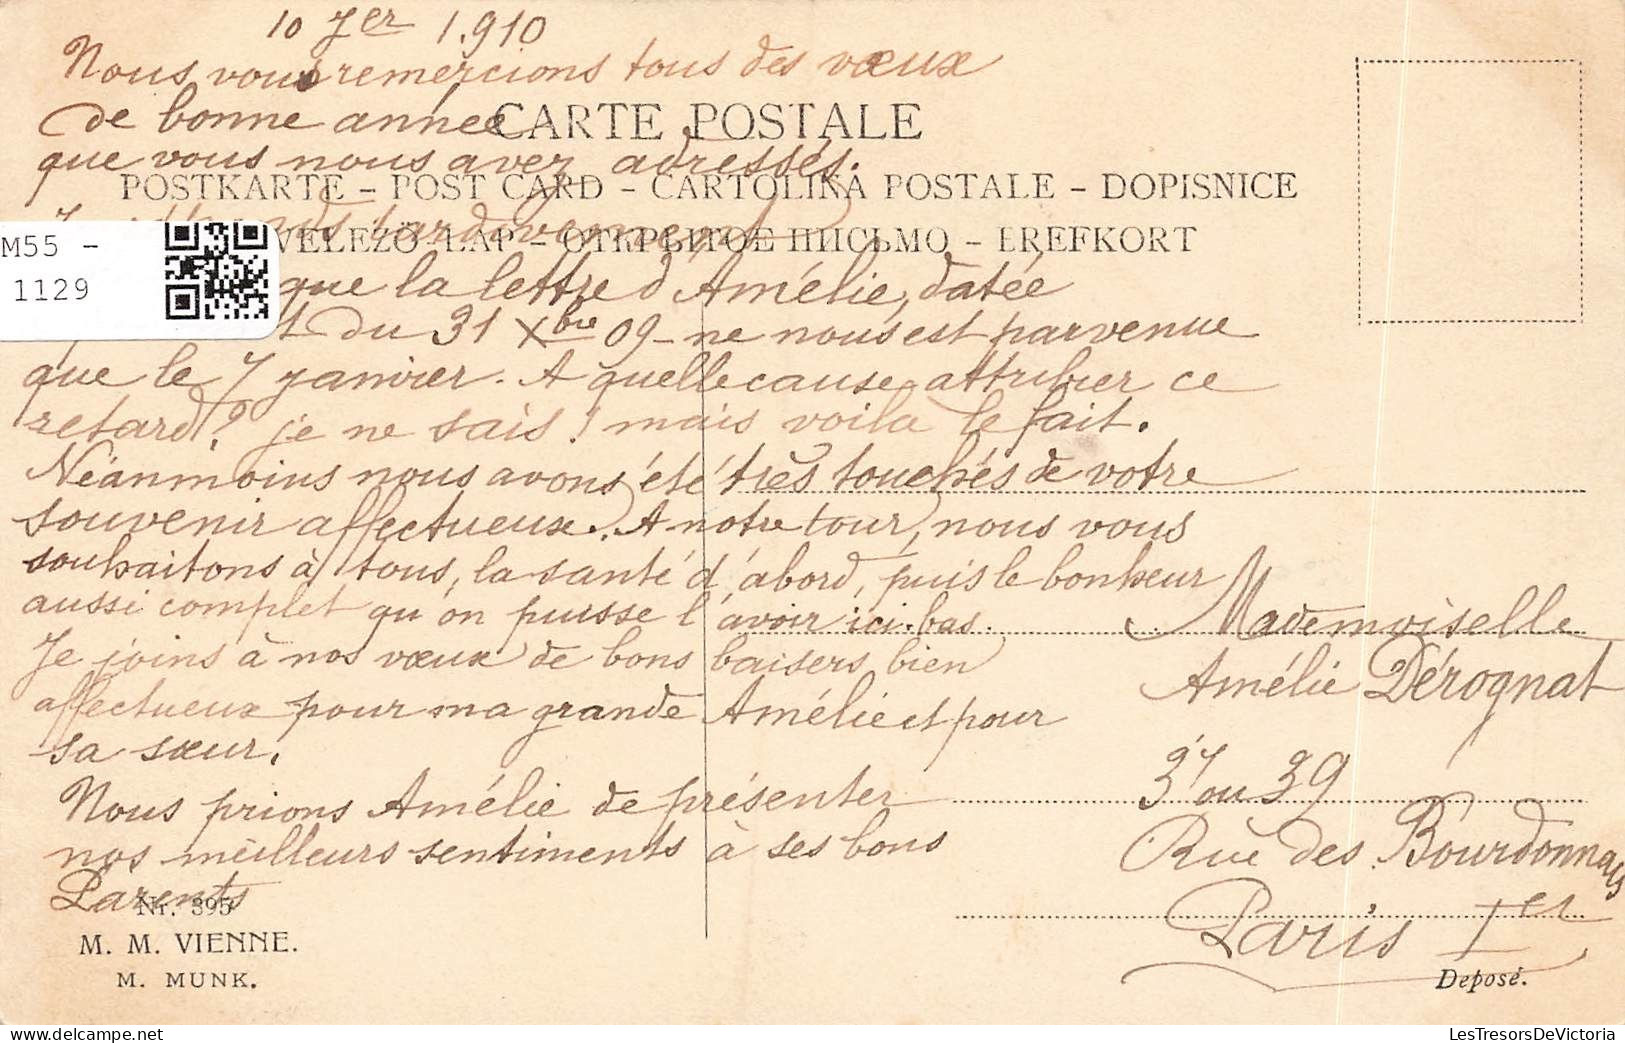 10 Jer 1.910
Nous vous remercions tous des vœux
de bonne année
CARTE POSTALE
que vous nous avez adressés.
POSTKARTE – POST CARD – CARTOLINA POSTALE – DOPISNICE
tardivement
LEVELEZÖ-LAP – ОТКРЫТОЕ ПИСЬМО – BREFKORT
M55 -
1129
que la lettre d'Amélie, datée
du 31 Xbre 09 - ne nous est parvenue
que le 7 janvier. A quelle cause attribuer ce
retard? je ne sais! mais voila le fait.
Néanmoins nous avons été très touchés de votre
souvenir affectueux. A notre tour, nous vous
souhaitons à tous, la santé d'abord, puis le bonheur
aussi complet qu'on puisse l'avoir ici-bas.
Je joins à nos vœux de bons baisers bien
affectueux pour ma grande Amélie et pour
sa sœur.
Nous prions Amélie de présenter
nos meilleurs sentiments à ses bons
Parents
Mademoiselle
Amélie Dérognat
37 ou 39
Rue des Bourdonnais
Paris Ier
Nr. 395
M. M. VIENNE.
M. MUNK.
Deposé.
LesTresorsDeVictoria